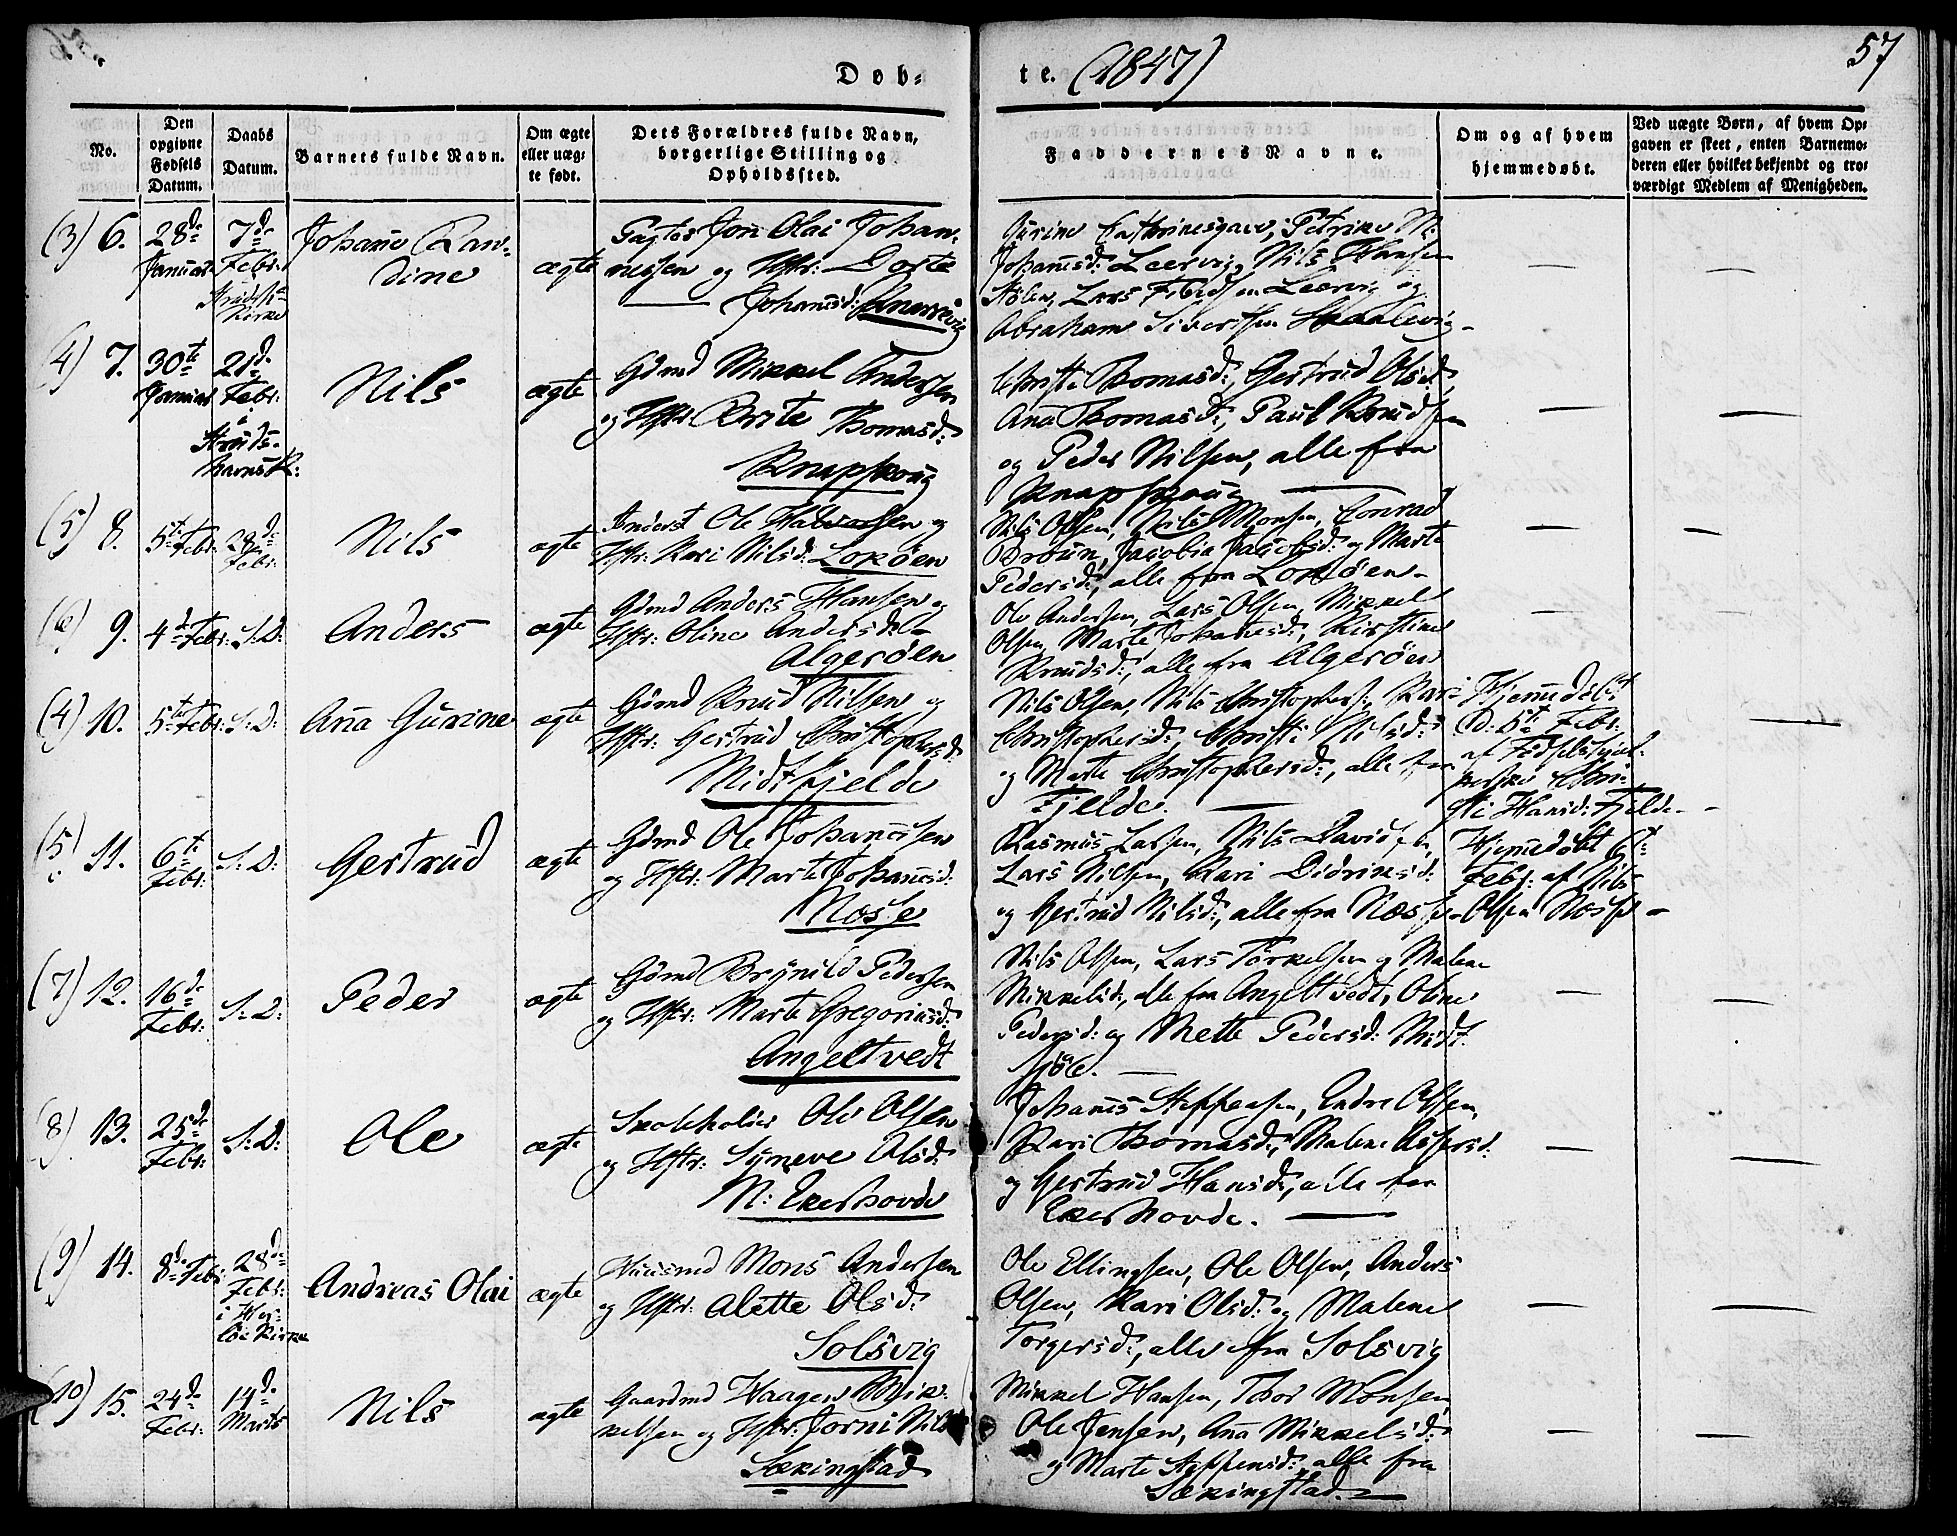 Døb-
te. (1847)
57
No.
Den opgivne Fødsels Datum.
Daabs Datum.
Barnets fulde Navn.
Om ægte eller uægte født.
Dets Forældres fulde Navn, borgerlige Stilling og Opholdssted.
Faddernes Navne.
Om og af hvem hjemmedøbt.
Ved uægte Børn, af hvem Opgaven er skeet, enten Barnemoderen eller hvilket bekjendt og troværdigt Medlem af Menigheden.
(3) 6.
28de Januar
7de Febr:
Kirke
Johanne
dine
ægte
Jon Olai Johan-
nessen og Hstr: Dorte
Johannesd:
Petrine M:
Johannsd: Leervig, Nils Hansen
Lars Leervig og
Abraham Sivertsen
(4) 7.
30te Januar
21de Febr:
i
Nils
ægte
Gdmd Mikkel Andersen
og Hstr: Brite Thomasd:
Knapskoug
Christi Thomasd:, Gertrud Olsd:,
Ana Thomasd:, Paul Knudsen
og Peder Nilsen, alle fra
Knapskoug
(5) 8.
5te Febr:
28de Febr:
Nils
ægte
Ole Halvorsen og
Hstr: Kari Nilsd: Lokøen
Nils Olsen, Nils Monsen, Conrad
Bruun, Jacobia Jacobsd: og Marte
Pedersd:, alle fra Lokøen
(6) 9.
4de Febr:
S: D:
Anders
ægte
Gdmd Anders Hansen og
Hstr: Oline Andersd:
Algerøen
Ole Andersen, Lars Olsen, Mikkel
Olsen, Marte Johannesd:, Kirstine
Knudsd:, alle fra Algerøen
(4) 10.
5te Febr:
S: D:
Ana Gurine
ægte
Gdmd Knud Nilsen og
Hstr: Gertrud Christophersd:
Midtfjelde
Nils Olsen, Nils Christophers:, Kari
Christophersd:, Christi Nilsd:
og Marte Christophersd:, alle fra
Fjelde.
Hjemmedøbt
D: 5te Febr:
af Fødselshjæl-
perske Chri-
sti Hansd: Fjelde
(5) 11.
6te Febr:
S: D:
Gertrud
ægte
Gdmd Ole Johannessen
og Hstr: Marte Johannesd:
Nosse
Rasmus Larsen, Nils Davidsen,
Lars Nilsen, Kari Didriksd:
og Gertrud Nilsd:, alle fra Nosse
Hjemmedøbt 6te
Febr: af Nils
Olsen Nosse
(7) 12.
16de Febr:
S: D:
Peder
ægte
Gdmd Brynild Pedersen
og Hstr: Marte Gregoriusd:
Angeltvedt
Nils Olsen, Lars Torkelsen og Malene
Mikkelsd:, alle fra Angeltvedt, Oline
Pedersd: og Mette Pedersd: Midt-
siøe.
(8) 13.
25de Febr:
S: D:
Ole
ægte
Skoleholder Ole Olsen
og Hstr: Synneve Olsd:
M: Ekerhovde
Johannes Steffensen, Endre Olsen,
Kari Thomasd:, Malene Assersd:
og Gertrud Hansd:, alle fra
Ekerhovde.
(9) 14.
8de Febr:
28de Febr:
i Her-
løe Kirke
Andreas Olai
ægte
Huusmd Mons Andersen
og Hstr: Alette Olsd:
Solsvig
Ole Ellingsen, Ole Olsen, Anders
Olsen, Kari Olsd: og Malene
Torgersd:, alle fra Solsvig
(10) 15.
24de Febr:
14de Marts
Nils
ægte
Gaardmd Haagen Mik-
kelsen og Hstr: Jorni Nilsd:
Sækingstad
Mikkel Hansen, Thor Monsen,
Ole Jensen, Ana Mikkelsd:
og Marte Steffensd:, alle fra
Sækingstad.